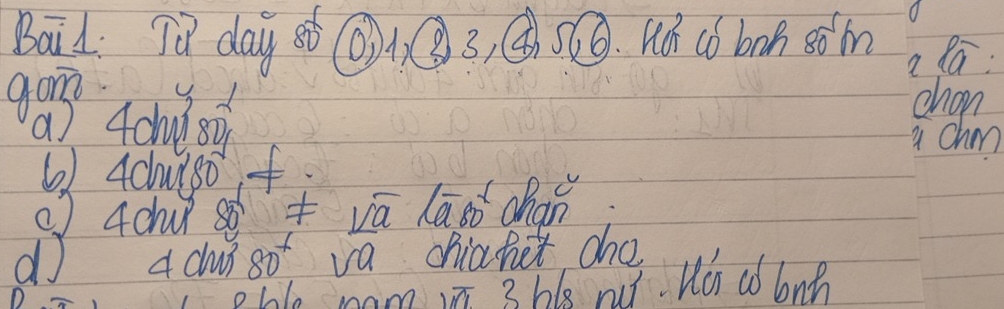 Bài 1: Từ dãy số 0, 1, 2, 3, 4, 5, 6. Hỏi có bnh số tn
gồm
a) 4 chữ số
b) 4 chữ số ≠.
c) 4 chữ số ≠ và là số chẵn.
d) 4 chữ số và chia hết cho
nam và 3 hls nữ. Hỏi có bnh
là:
chọn
chọn